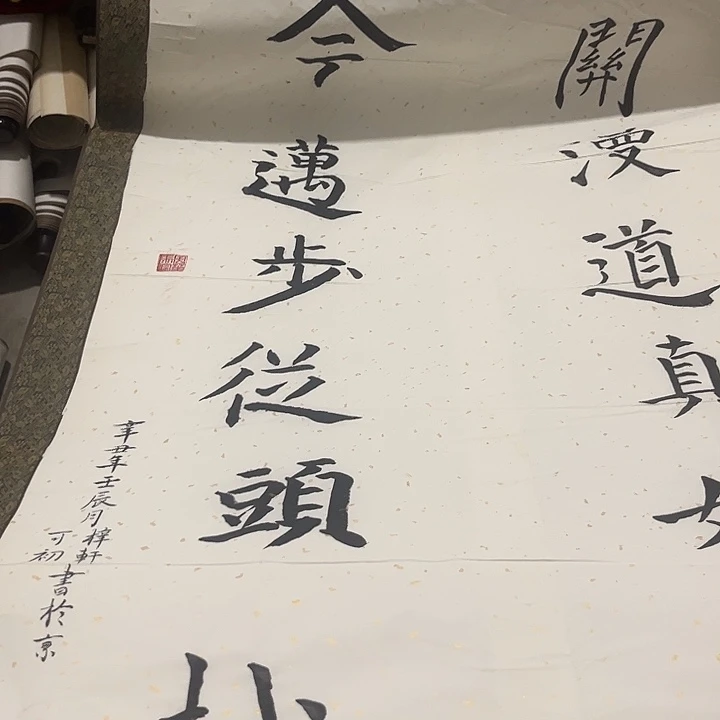 關漫道真
今邁步從頭
辛丑年壬辰月梓軒
可初書於京